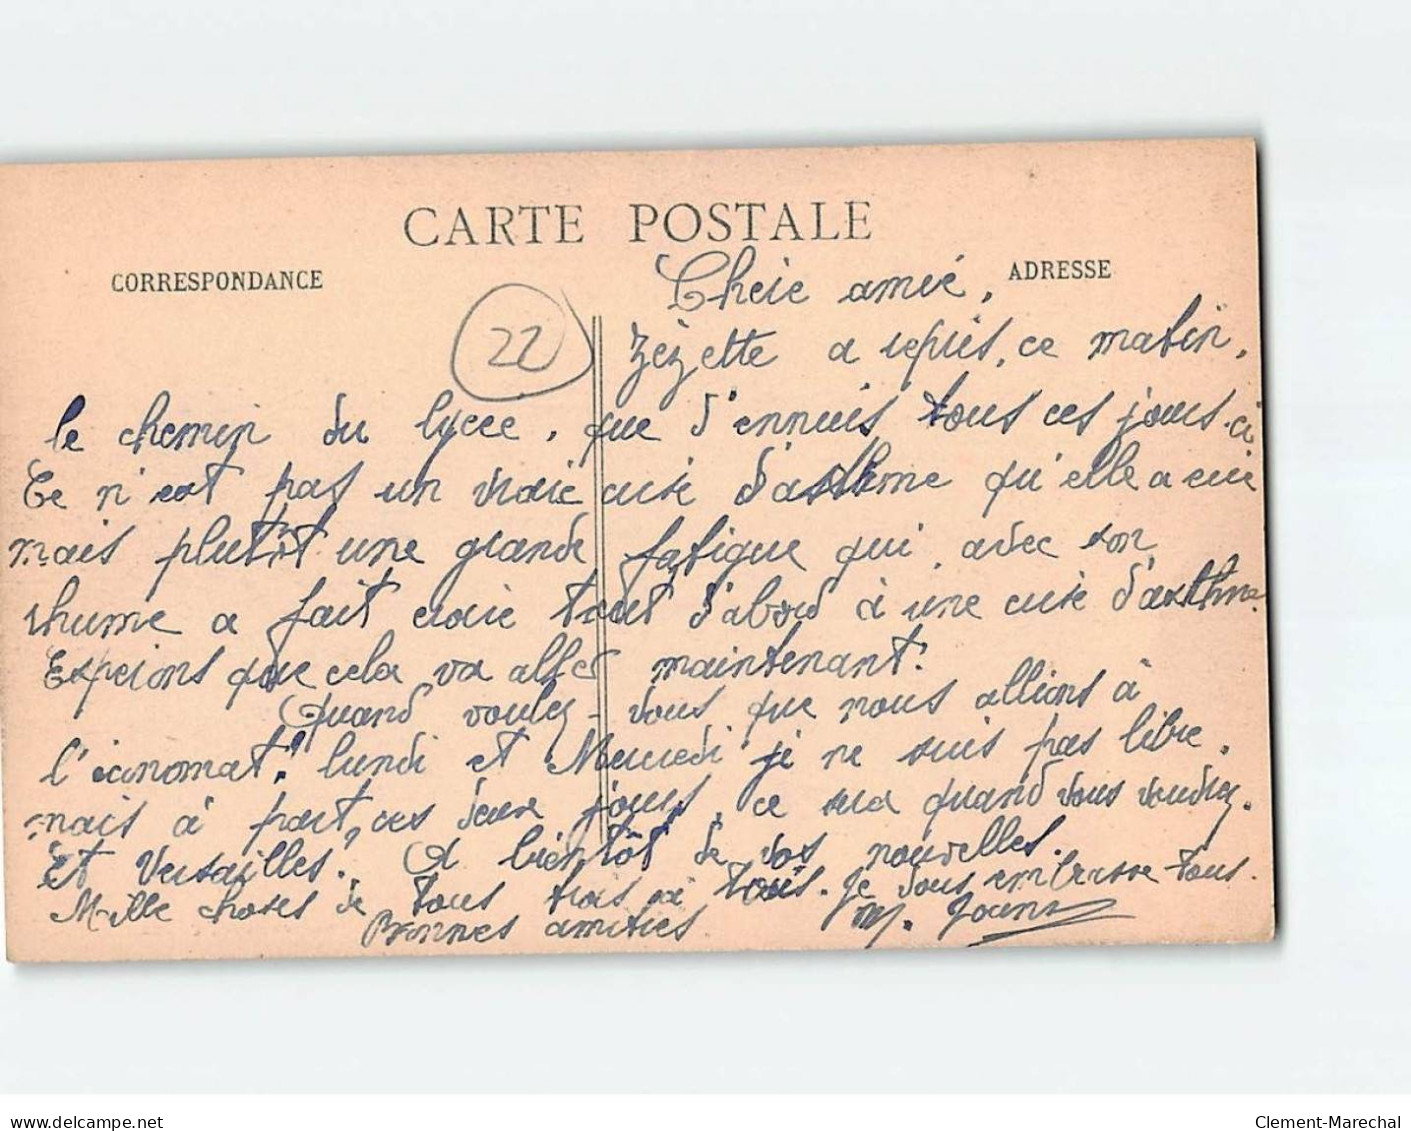 CARTE POSTALE
CORRESPONDANCE
ADRESSE
22
Chère amie,
Zézette a repris, ce matin,
le chemin du lycée, que d'ennuis tous ces jours-ci
Ce n'est pas un vraie crise d'asthme qu'elle a eue
mais plutôt une grande fatigue qui, avec son
rhume a fait croire tout d'abord à une crise d'asthme.
Espérons que cela va aller maintenant.
Quand voulez-vous que nous allions à
l'économat? lundi et Mercredi je ne suis pas libre,
mais à part, ces deux jours, ce sera quand vous voudrez.
Et Versailles? A bientôt de vos nouvelles.
Mille choses de tous trois à tous. Je vous embrasse tous.
Bonnes amitiés M.
delcampe.net
Clement-Marechal